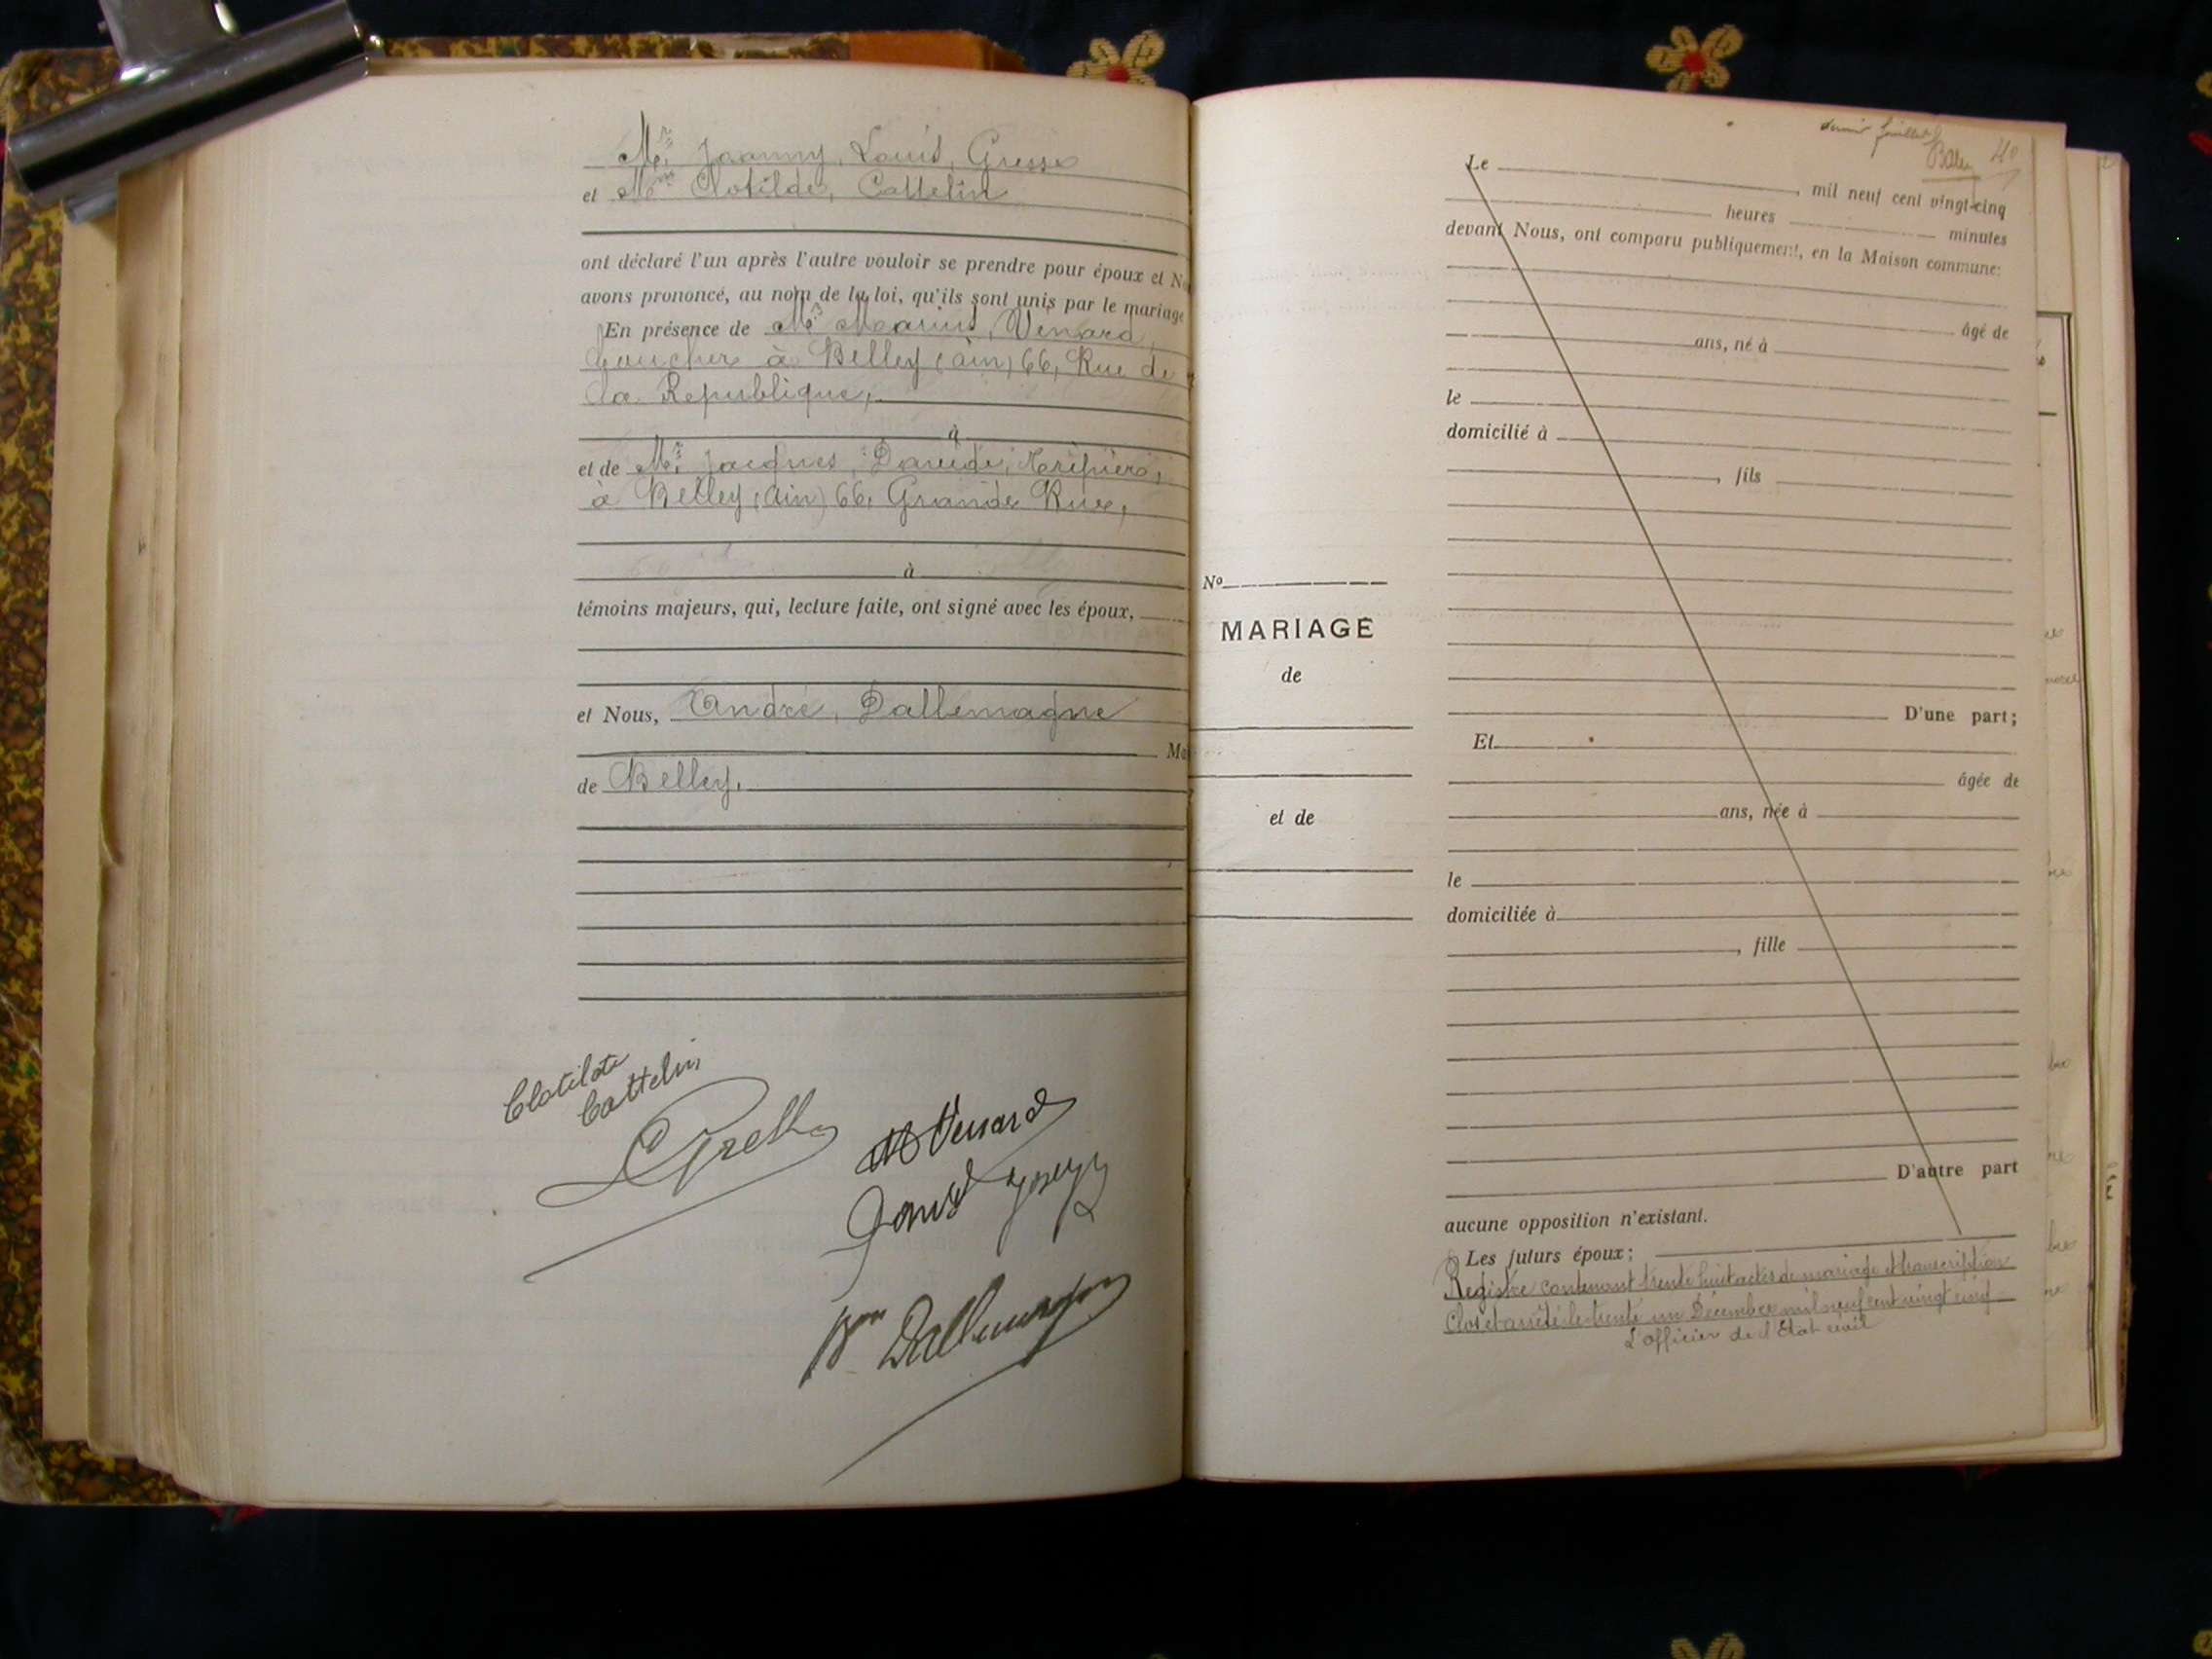 Mr Joanny, Louis, Gresse
et Mme Clotilde, Cattelin
ont déclaré l'un après l'autre vouloir se prendre pour époux et No
avons prononcé, au nom de la loi, qu'ils sont unis par le mariage
En présence de Mr Marius, Venard,
boucher à Belley (ain) 66, Rue de
la Republique,
à
et de Mr Jacques,
à Belley (ain) 66, Grande Rue,
à
témoins majeurs, qui, lecture faite, ont signé avec les époux,
et Nous, André, Dallemagne
Ma
de Belley.
Clotilde
Cattelin
M Venard
Dallemagne
dernier feuillet
40
Le , mil neuf cent vingt-cinq
heures minutes
devant Nous, ont comparu publiquement, en la Maison commune:
âgé de
ans, né à
le
domicilié à
, fils
No
MARIAGE
de
et de
D'une part;
Et
âgée de
ans, née à
le
domiciliée à
, fille
D'autre part
aucune opposition n'existant.
Les futurs époux:
Registre contenant trente huit actes de mariage et transcription
Clos et arrêté le trente un Décembre mil neuf cent vingt cinq
L'officier de l'Etat civil